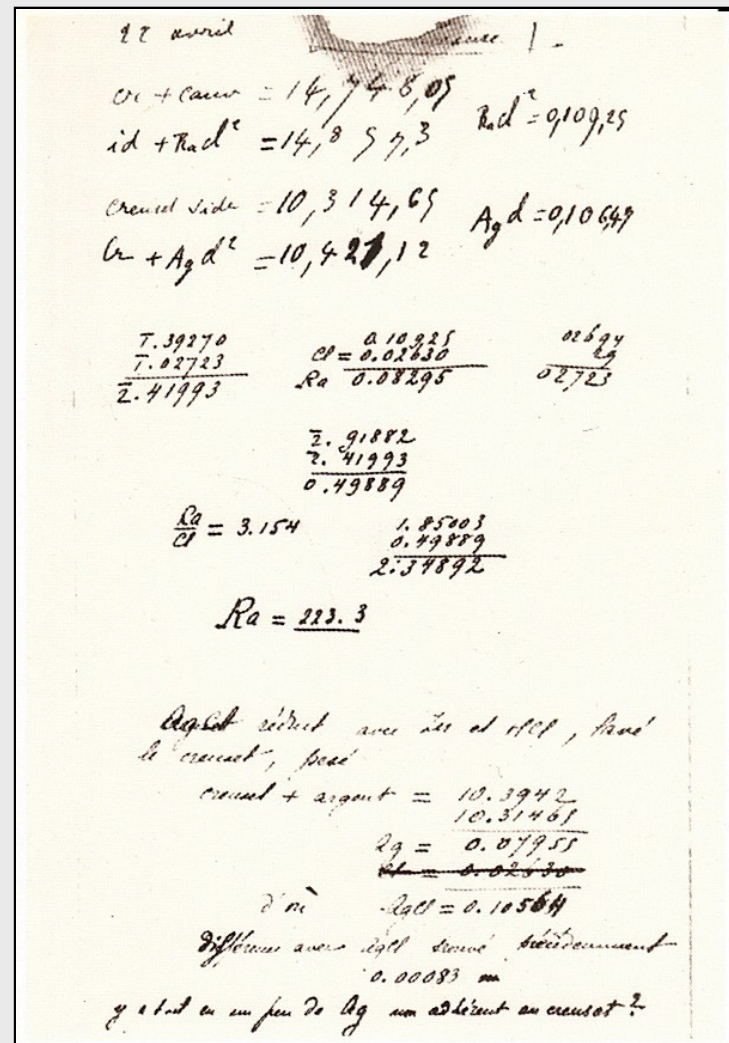 22 avril
cr + couv = 14,748,05 Rad² = 0,109,25
id + Rad² = 14,857,3
creuset vide = 10,314,65 Agd = 0,10647
Cr + Agd² = 10,421,12
T.39270 0.10925 02694
T.02723 Cl = 0.02630 29
2.41993 Ra 0.08295 02723
2.91882
2.41993
0.49889
Ra/Cl = 3.154 1.85003
0.49889
2.34892
Ra = 223.3
AgCl réduit avec Zn et HCl, lavé
le creuset, pesé
creuset + argent = 10.3942
10.31465
Ag = 0.07955
Cl = 0.02630
d'où AgCl = 0.10564
différence avec AgCl trouvé précédemment
0.00083
y a t-il eu un peu de Ag non adhérent au creuset ?